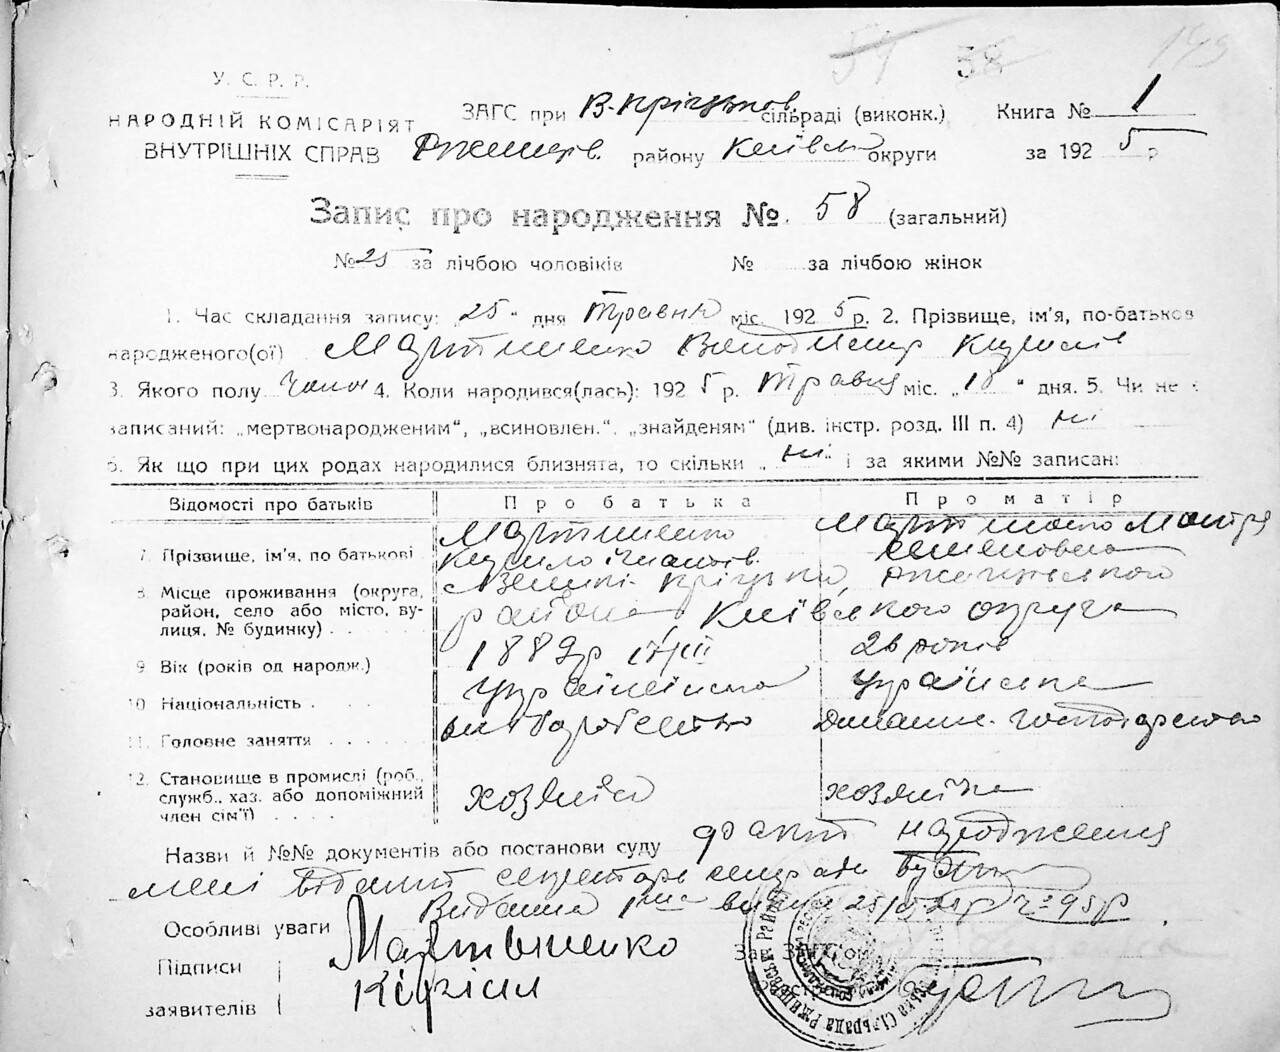 54 58 149
У. С. Р. Р.
НАРОДНІЙ КОМІСАРІЯТ
ВНУТРІШНІХ СПРАВ
ЗАГС при В-Пріцьков. сільраді (виконк.) Книга № 1
Ржищів. району Київськ округи за 1925 р
Запис про народження №. 58 (загальний)
№ 25 за лічбою чоловіків № за лічбою жінок
1. Час складання запису: „25" дня Травня міс. 1925 р. 2. Прізвище, ім'я, по-батьков
народженого(ої) Мартиненко Володимир Кирилів
3. Якого полу Чолов 4. Коли народився(лась): 1925 р. Травня міс. „18" дня. 5. Чи не є
записаний: „мертвонародженим“, „всиновлен.“, „знайденям“ (див. інстр. розд. III п. 4) ні
6. Як що при цих родах народилися близнята, то скільки „ні" і за якими №№ записан:
Відомості про батьків Про батька Про матір
7. Прізвище, ім'я, по батькові
Мартиненко
Кирило Гнатів.
Мартиненко Мотря
Семеновна
8. Місце проживання (округа,
район, село або місто, ву-
лиця, № будинку)
Пріцьки, Ржищівського
района Київського округа
9 Вік (років од народж.) 1889р 26 років
10 Національність Українська Українська
11. Головне заняття хліборобство Домашн. господарство
12. Становище в промислі (роб.,
служб., хаз. або допоміжний
член сім'ї)
хозяїн хозяйка
Назви й №№ документів або постанови суду факт народження
мені відомий секретарь сільради
Особливі уваги Видана
Підписи
заявителів
Мартыненко
Кирил
Зав. ЗАГС'ом